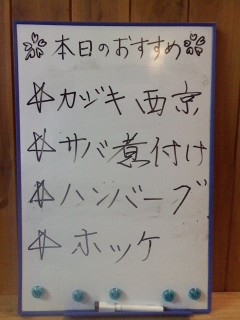 本日のおすすめ
☆カジキ西京
☆サバ煮付け
☆ハンバーグ
☆ホッケ